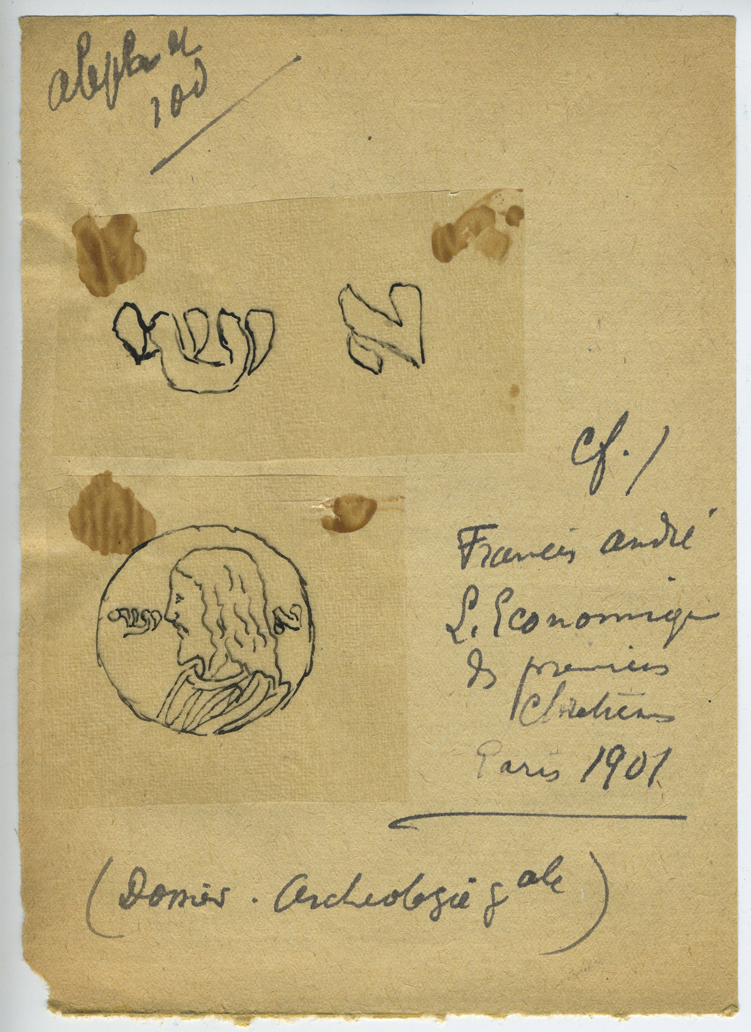 100
א ישו
ישו א
cf. /
Francis André
L. Economique
ds premiers
Chrétiens
Paris 1901
(Dossier . Archeologie gale)